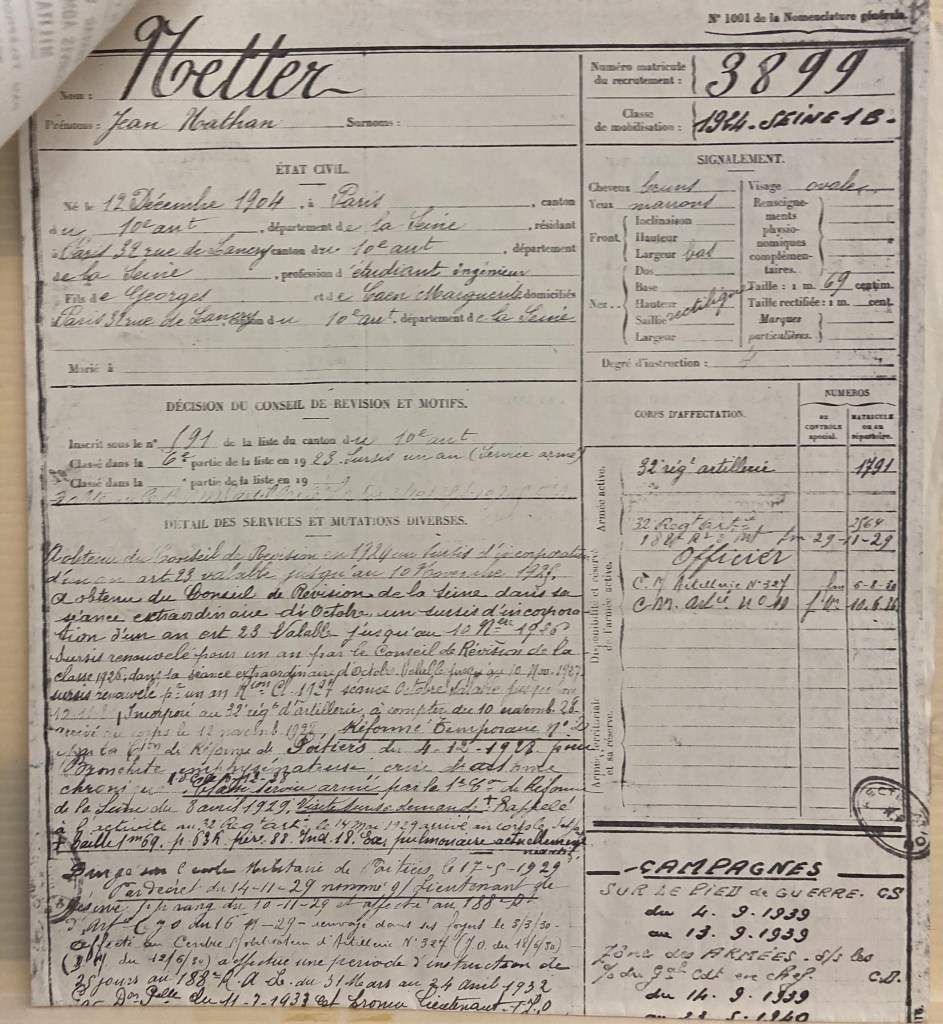 N° 1001 de la Nomenclature générale.
Nom : Netter
Prénoms : Jean Nathan Surnoms :
Numéro matricule du recrutement : 3899
Classe de mobilisation : 1924 - SEINE 1 B -
ÉTAT CIVIL.
Né le 12 Décembre 1904, à Paris, canton
du 10e arrt, département de la Seine, résidant
à Paris 32 rue de Lancry canton du 10e arrt, département
de la Seine, profession d'étudiant ingénieur
Fils de Georges et de Caen Marguerite domiciliés
Paris 32 rue de Lancry, canton du 10e arrt, département de la Seine
Marié à
SIGNALEMENT.
Cheveux bruns
Yeux marrons
Front
Inclinaison
Hauteur
Largeur bas
Nez
Dos
Base
Hauteur
Saillie rectiligne
Largeur
Visage ovale
Renseignements physionomiques complémentaires.
Taille : 1 m. 69 centim.
Taille rectifiée : 1 m. cent.
Marques particulières.
Degré d'instruction :
DÉCISION DU CONSEIL DE REVISION ET MOTIFS.
Inscrit sous le n° 191 de la liste du canton du 10e arrt
Classé dans la 6e partie de la liste en 1923 Sursis un an (Service armé)
Classé dans la e partie de la liste en 19
DÉTAIL DES SERVICES ET MUTATIONS DIVERSES.
A obtenu du Conseil de Revision en 1924 un sursis d'incorporation
d'un an art 23 valable jusqu'au 10 Novembre 1925.
A obtenu du Conseil de Révision de la Seine dans sa
séance extraordinaire d'Octobre un sursis d'incorpora-
tion d'un an art 23 Valable jusqu'au 10 Nbre 1926
Sursis renouvelé pour un an par le Conseil de Révision de la
classe 1926, dans sa séance extraordinaire d'Octobre. Valable jusqu'au 10 Nov. 1927
sursis renouvelé pr un an Cl. 1927 séance Octobre Valable jusqu'au
Incorporé au 32e régt d'artillerie, à compter du 10 novemb. 28
arrivé au corps le 12 novemb. Réformé Temporaire N° 2
par la Con de Réforme de Poitiers du 4-12-1928 pour
Bronchite emphysémateuse crise d'asthme
chronique service armé par la 1ere Con de Réforme
de la Seine du 8 avril 1929. Visite sur sa demande Rappelé
à l'activité au 32 Regt Artie le 14 Mai 1929 arrivé au corps le
Taille 1m69. p. 63k. pér. 88. Ind. 18. Etat pulmonaire actuellement
Dirigé sur l'école Militaire de Poitiers le 17-5-1929
Par décret du 14-11-29 nommé s/ Lieutenant de
réserve pr prendre rang du 10-11-29 et affecté au 188e Rt
d'Artie (J.O. du 16-11-29 - renvoyé dans ses foyers le 3/3/30 -
affecté au Centre Mobilisateur d'Artillerie N° 327 (J.O. du 18/6/30)
a effectué une période d'instruction de
25 jours au 188e R.A.L. du 31 Mars au 24 avril 1932
du 11-7-1933 est promu Lieutenant
CORPS D'AFFECTATION.
NUMÉROS
AU CONTRÔLE spécial.
MATRICULE ou au répertoire.
Armée active.
32e régt artillerie 1791
Disponibilité et réserve de l'armée active.
32 Regt Artie 2564
188e 29-11-29
Officier
C. M. Artillerie N° 327
Armée territoriale et sa réserve.
CAMPAGNES
SUR LE PIED de GUERRE. CS
du 4. 9. 1939
au 13. 9. 1939
Zône des ARMÉES. s/s les
Cdt en chef. C.D.
du 14. 9. 1939